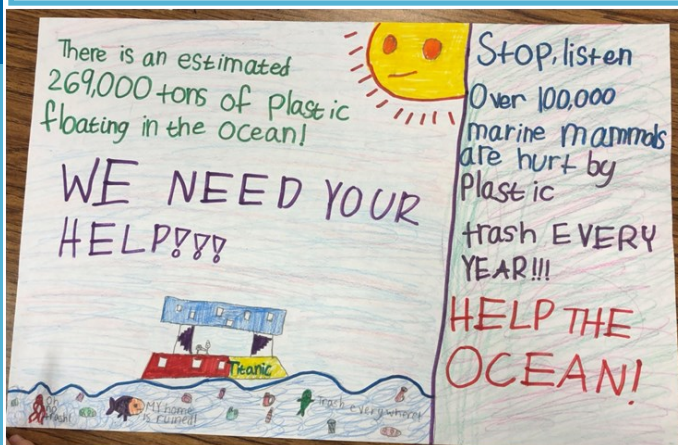 There is an estimated
269,000 tons of Plastic
floating in the ocean!
WE NEED YOUR
HELP!!!
Titanic
Oh
no
trash!
MY home
is ruined!
Trash everywhere!
Stop, listen
Over 100,000
marine mammals
are hurt by
Plastic
trash EVERY
YEAR!!!
HELP THE
OCEAN!